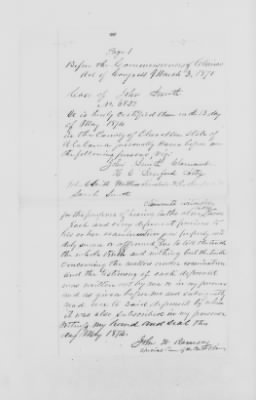 Page 1
Before the Commissioners of Claims
Act of Congress of March 3, 1871
Case of John Smith
No. 6857
It is hereby certified that on the 13 day
of May 1874
in the County of Cherokee State of
Alabama personally came before me
the following persons, viz
John Smith Claimant
H C Sanford Atty
Sarah Smith
Claimants Witnesses
for the purpose of hearing in the above
Each and every deponent previous to
his or her examination was properly and
duly sworn or affirmed to tell the truth
the whole truth and nothing but the truth
concerning the matters under examination
and the testimony of each deponent
was written out by me or in my presence
and as given before me and subsequently
read over to said deponent by whom
it was also subscribed in my presence
Witness my hand and seal this
day of May 1874.
John W Ramsey